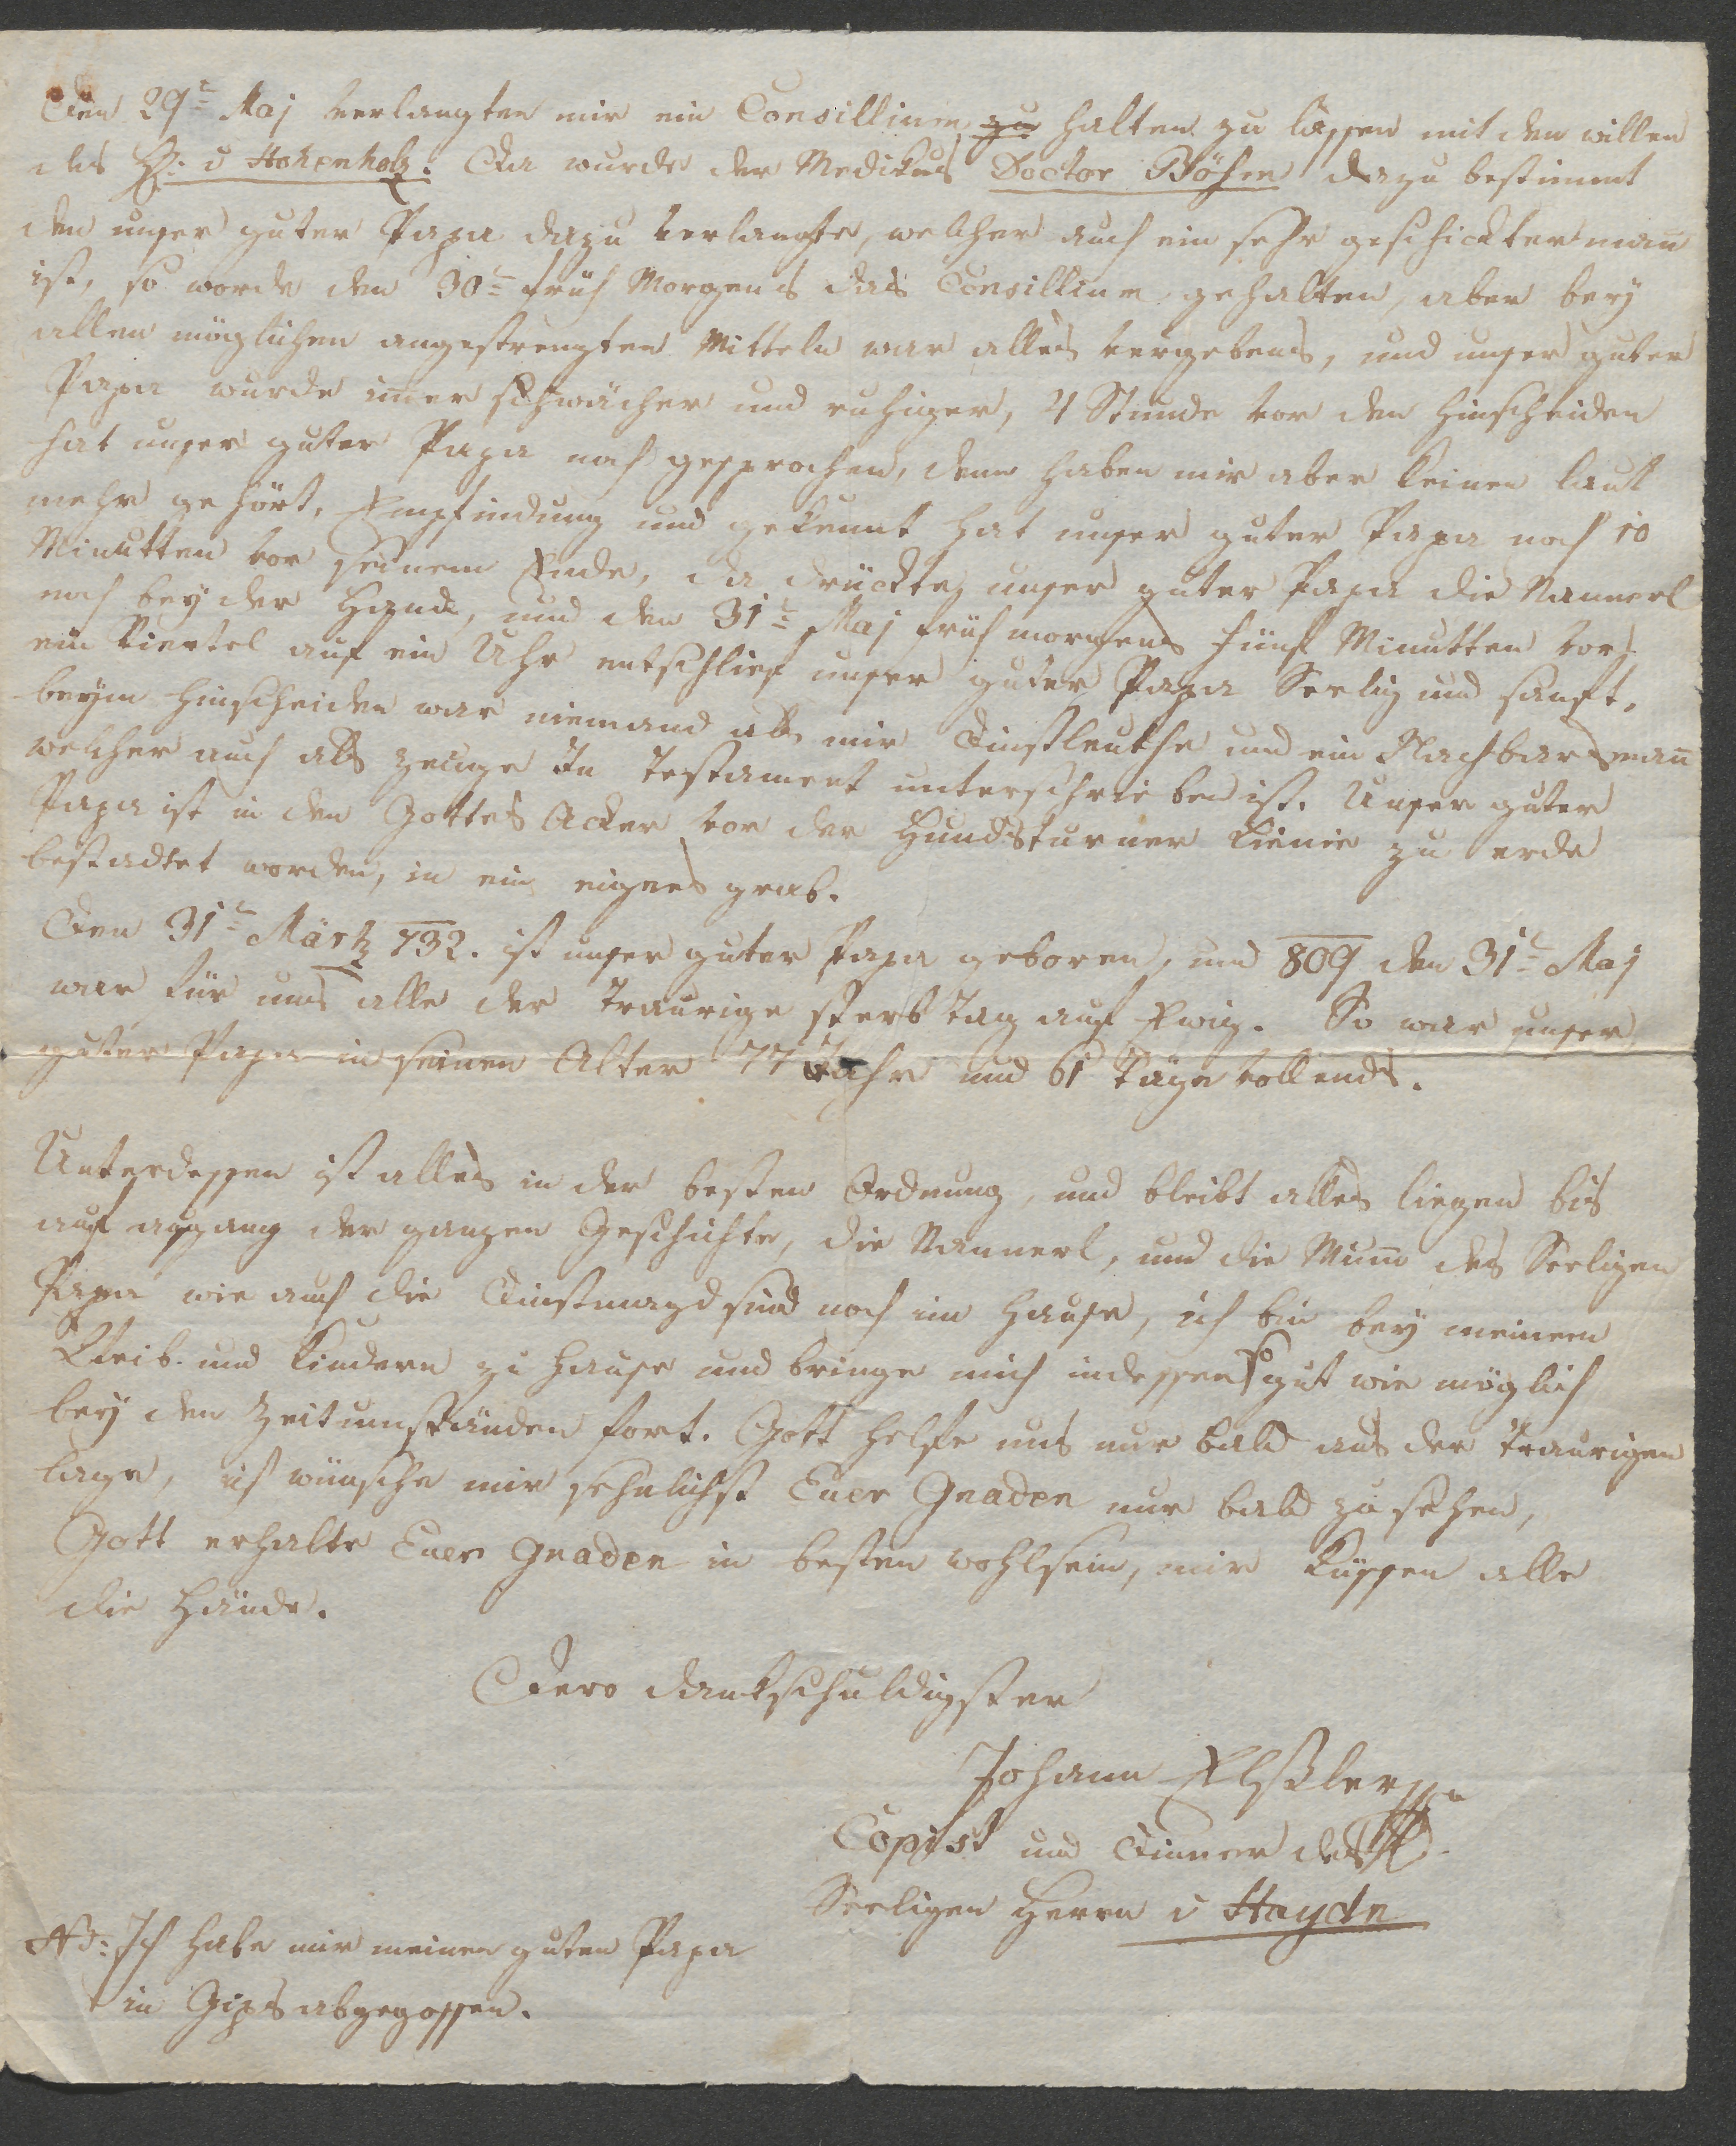 Den 29t Maj verlangten mir ein Consillium zu halten zu lassen mit den willen
des H: v Hohenholz. Da wurde der Medikus Doctor Böhm dazu bestimmt
den unser guter Papa dazu verlangte, welcher auch ein sehr geschickter man̄
ist, so worde den 30t früh Morgens das Consillium gehalten, aber bey
allen möglichen angestrengten Mitteln war alles vergebens, und unser guter
Papa wurde im̄er schwächer und ruhiger, 4 Stunde vor den hinscheiden
hat unser guter Papa noch gesprochen, denn haben mir aber keinen laut
mehr gehört, Empfindung und gekennt hat unser guter Papa noch 10
Minutten vor seinem Ende, da drückte unser guter Papa die Nannerl
noch bey der Hand, und den 31t Maj früh morgens fünf Minutten vor
ein Viertel auf ein Uhr entschlief unser guter Papa Seelig und sanft,
beym hinscheiden war niemand als mir Dinstleuthe und ein Nachbarsman̄
welcher auch als zeuge In Testament unterschrieben ist. Unser guter
Papa ist in den Gottes Acker vor der Hundsturner Linie zu erde
bestadtet worden, in ein eignes grab.
Den 31t Märtz 732. ist unser guter Papa geboren, und 809 den 31t Maj
war für uns alle der traurige sterb Tag auf Ewig. So war unser
guter Papa in seinen Alter 77 Jahr und 61 Täge vollends.
Unterdessen ist alles in der besten Ordnung, und bleibt alles liegen bis
auf ausgang der ganzen Geschichte, die Nannerl, und die Mum̄ des Seeligen
Papa wie auch die Dinstmagd sind noch im Hause, ich bin bey meinem
Weib und Kindern zu Hause und bringe mich indessen so gut wie möglich
bey den Zeitumständen fort. Gott helfe uns nur bald aus der traurigen
lage, ich wünsche mir sehnlichst Euer Gnaden nur bald zu sehen,
Gott erhalte Euer Gnaden in besten wohlsein, mir küssen alle
die Hände.
Dero dankschuldigster
Johann Elßler
Copist und Diener des
Seeligen Herrn v Haydn
NB: Ich habe mir meinen guten Papa
in Gips abgegossen.